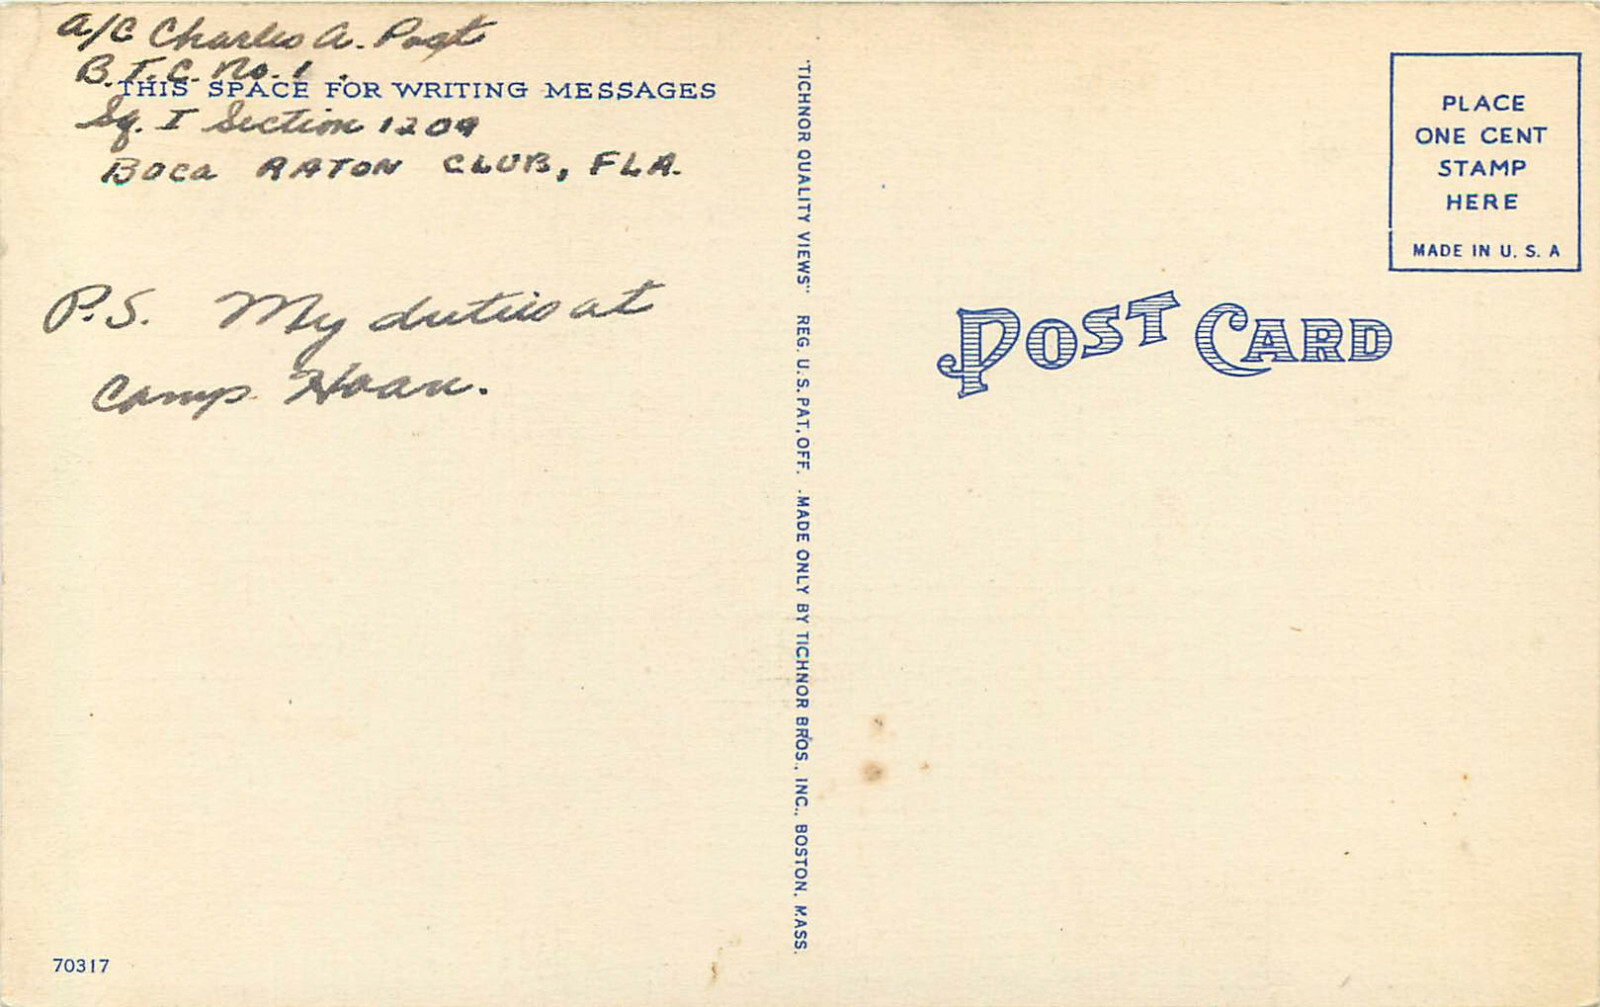 A/C Charles A. Post
B.T.C. No. 1.
THIS SPACE FOR WRITING MESSAGES
Sq. I Section 1209
Boca RATON CLUB, FLA.
P.S. My duties at
Camp Haan.
"TICHNOR QUALITY VIEWS" REG. U.S. PAT. OFF. -MADE ONLY BY TICHNOR BROS., INC., BOSTON, MASS.
PLACE
ONE CENT
STAMP
HERE
MADE IN U. S. A
POST CARD
70317